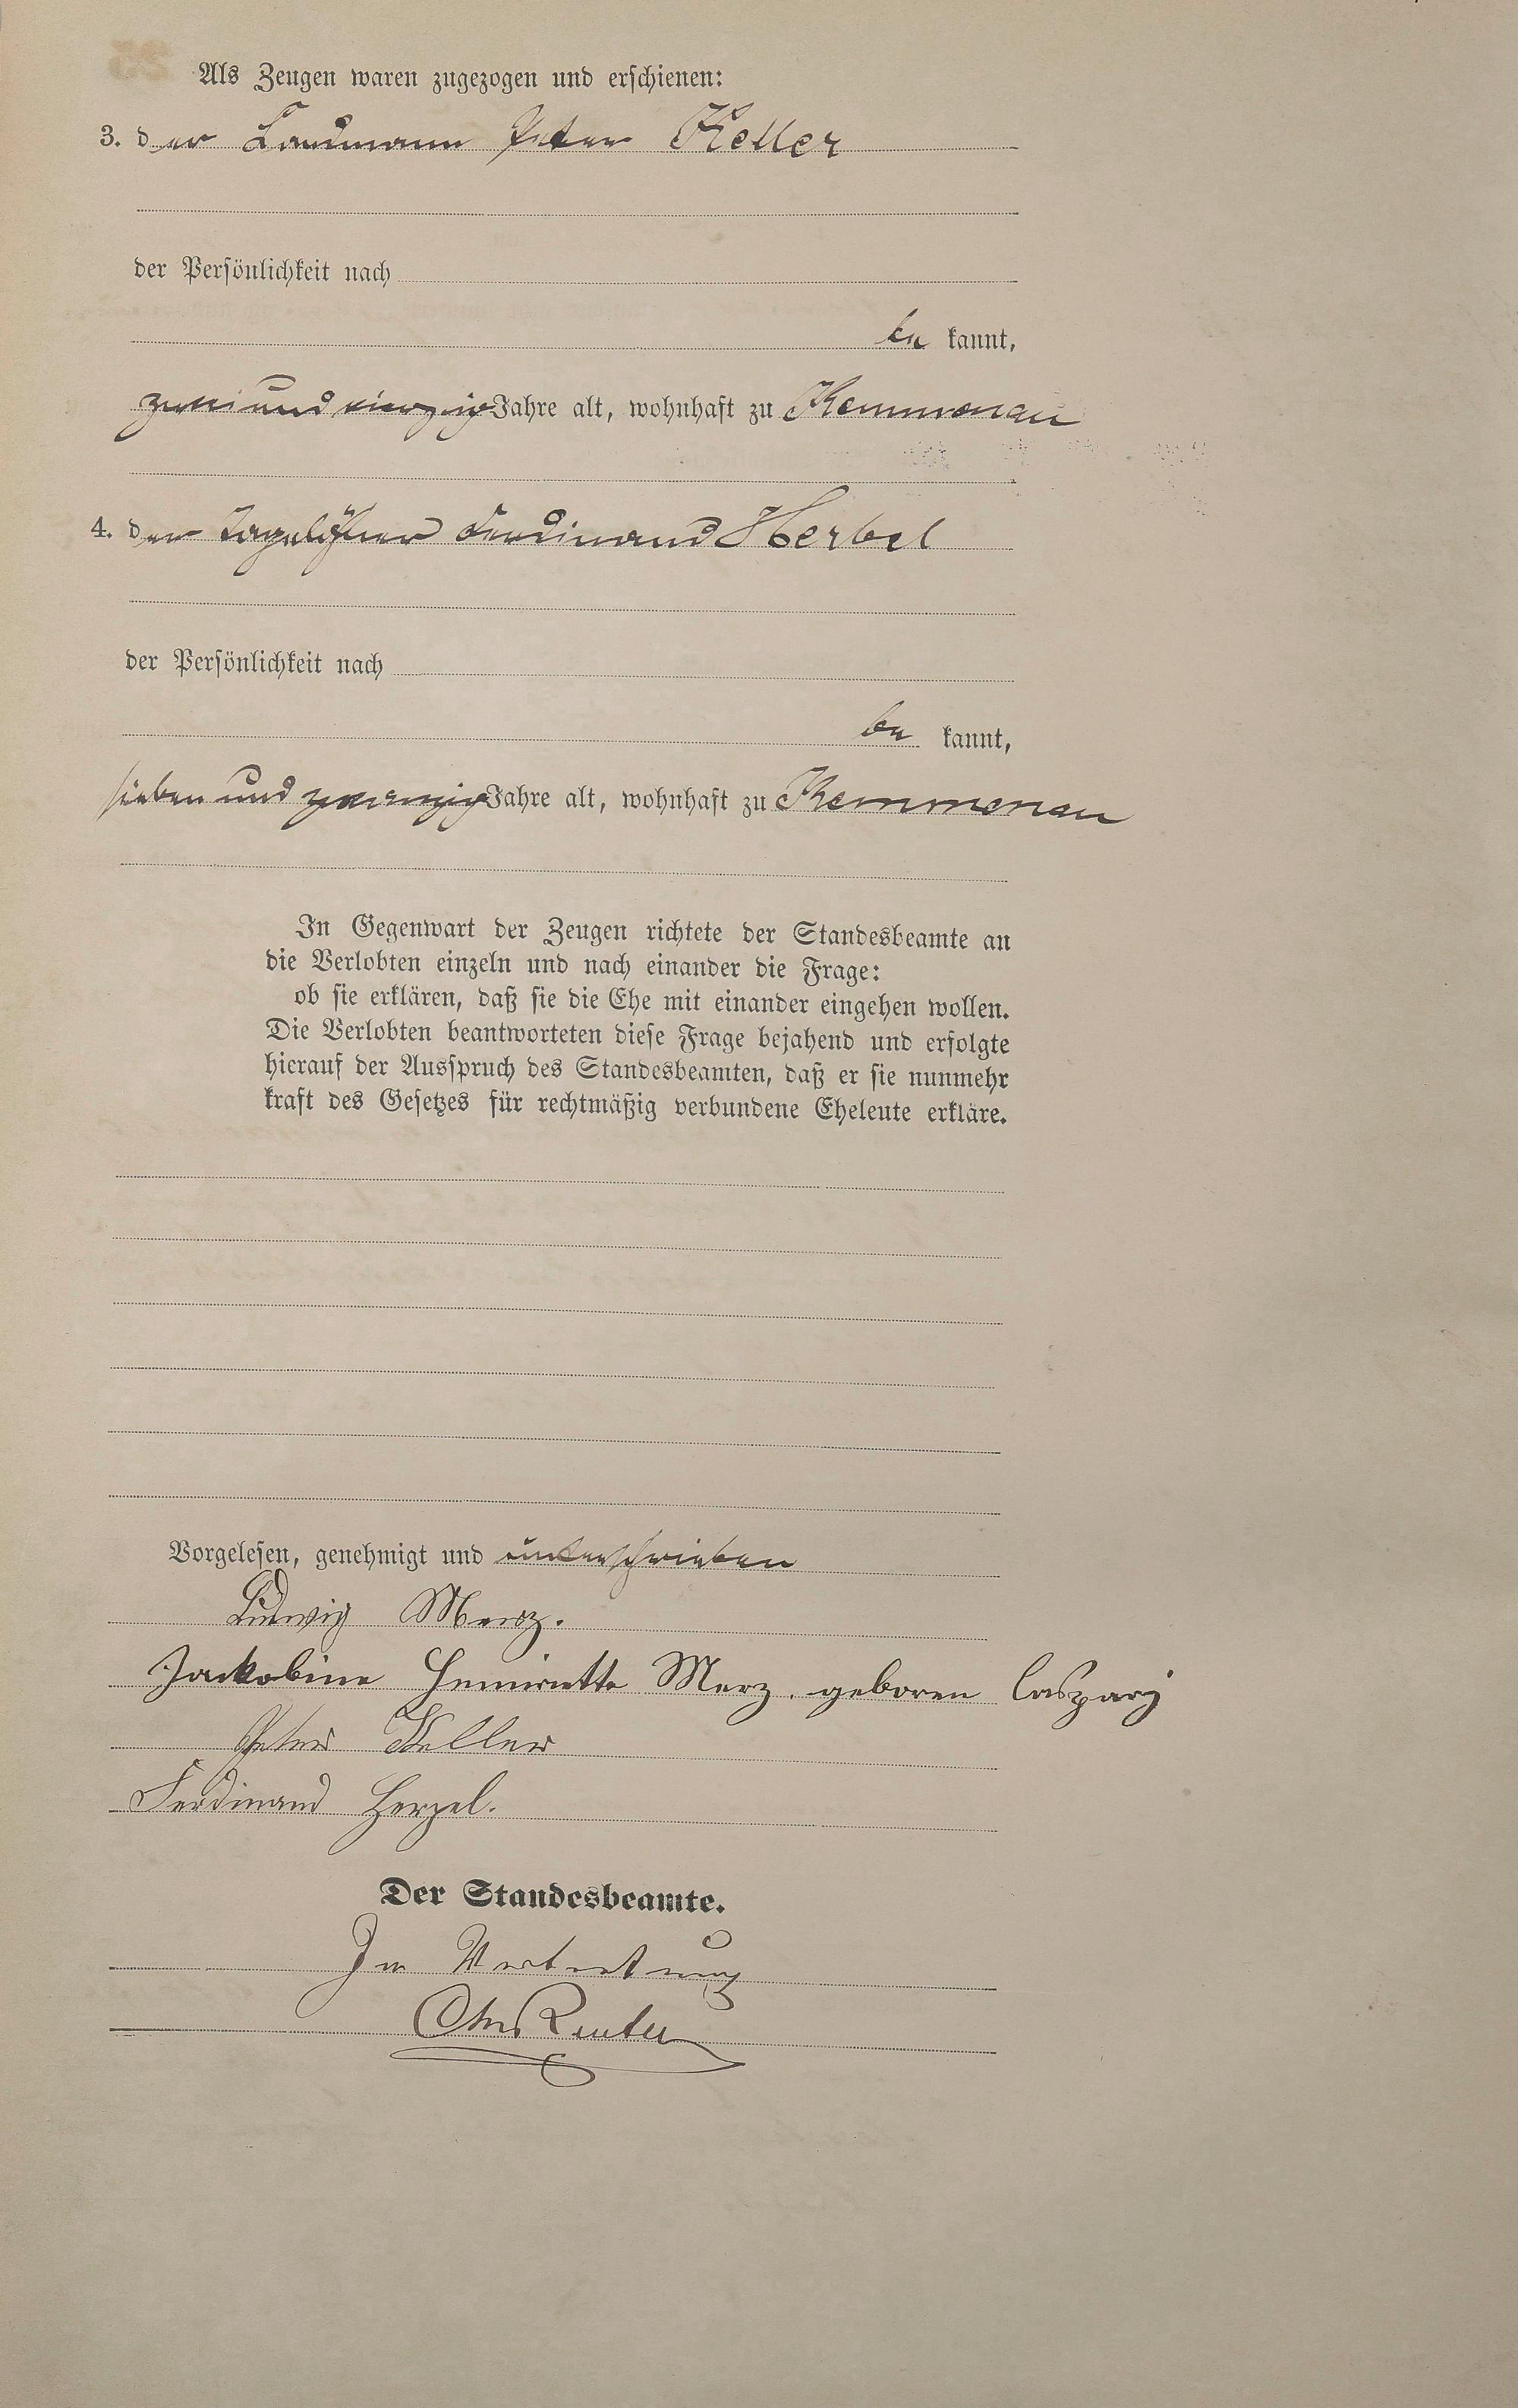 Als Zeugen waren zugezogen und erschienen:
3. der Landmann Peter Keller
der Persönlichkeit nach
be kannt,
zweiundvierzig Jahre alt, wohnhaft zu Kemmenau
4. der Tagelöhner Ferdinand Herbel
der Persönlichkeit nach
be kannt,
sieben und zwanzig Jahre alt, wohnhaft zu Kemmenau
In Gegenwart der Zeugen richtete der Standesbeamte an
die Verlobten einzeln und nach einander die Frage:
ob sie erklären, daß sie die Ehe mit einander eingehen wollen.
Die Verlobten beantworteten diese Frage bejahend und erfolgte
hierauf der Ausspruch des Standesbeamten, daß er sie nunmehr
kraft des Gesetzes für rechtmäßig verbundene Eheleute erkläre.
Vorgelesen, genehmigt und unterschrieben
Ludwig Merz.
Jackobine Henriette Merz. geboren Caspary
Peter Keller
Ferdinand
Der Standesbeamte.
In Vertretung
Reuter